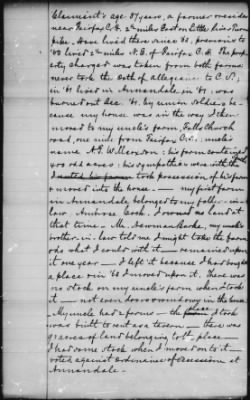 Claimant's age 37 years, a farmer resides
near Fairfax C.H. 2 1/2 miles East on Little River Turn
pike. Have lived there since 63, previous to
63 lived 2 1/2 miles N.E. of Fairfax C.H. The prop
erty charged was taken from both farms.
never took the Oath of allegiance to C.S.,
in 61 lived in Annandale in 61, was
burned out Dec. 61, by union soldiers be-
cause my house was in the way. I then
moved to my uncle's farm, Falls Church
road, one mile from Fairfax C.H.; uncle's
name; his farm contained
400 odd acres; his sympathies was with the
took possession of his farm
& moved into the house. — my first farm
in Annandale belonged to my father-in-
law. Ambrose Cock. I owned no land at
that time. Mr. my uncle's
brother-in-law told me I might take the farm
& do what I could with it. — remained upon
it one year — I left it because I had bought
a place & in 63 I moved upon it. There was
no stock on my uncle's farm when I took
it — not even doors or windows in the house.
My uncle had 2 farms — the place I took
was built to rent as a tavern — there was
acres of land belonging to the place —
I had some stock when I moved on to it —
voted against ordinance of secession at
Annandale.